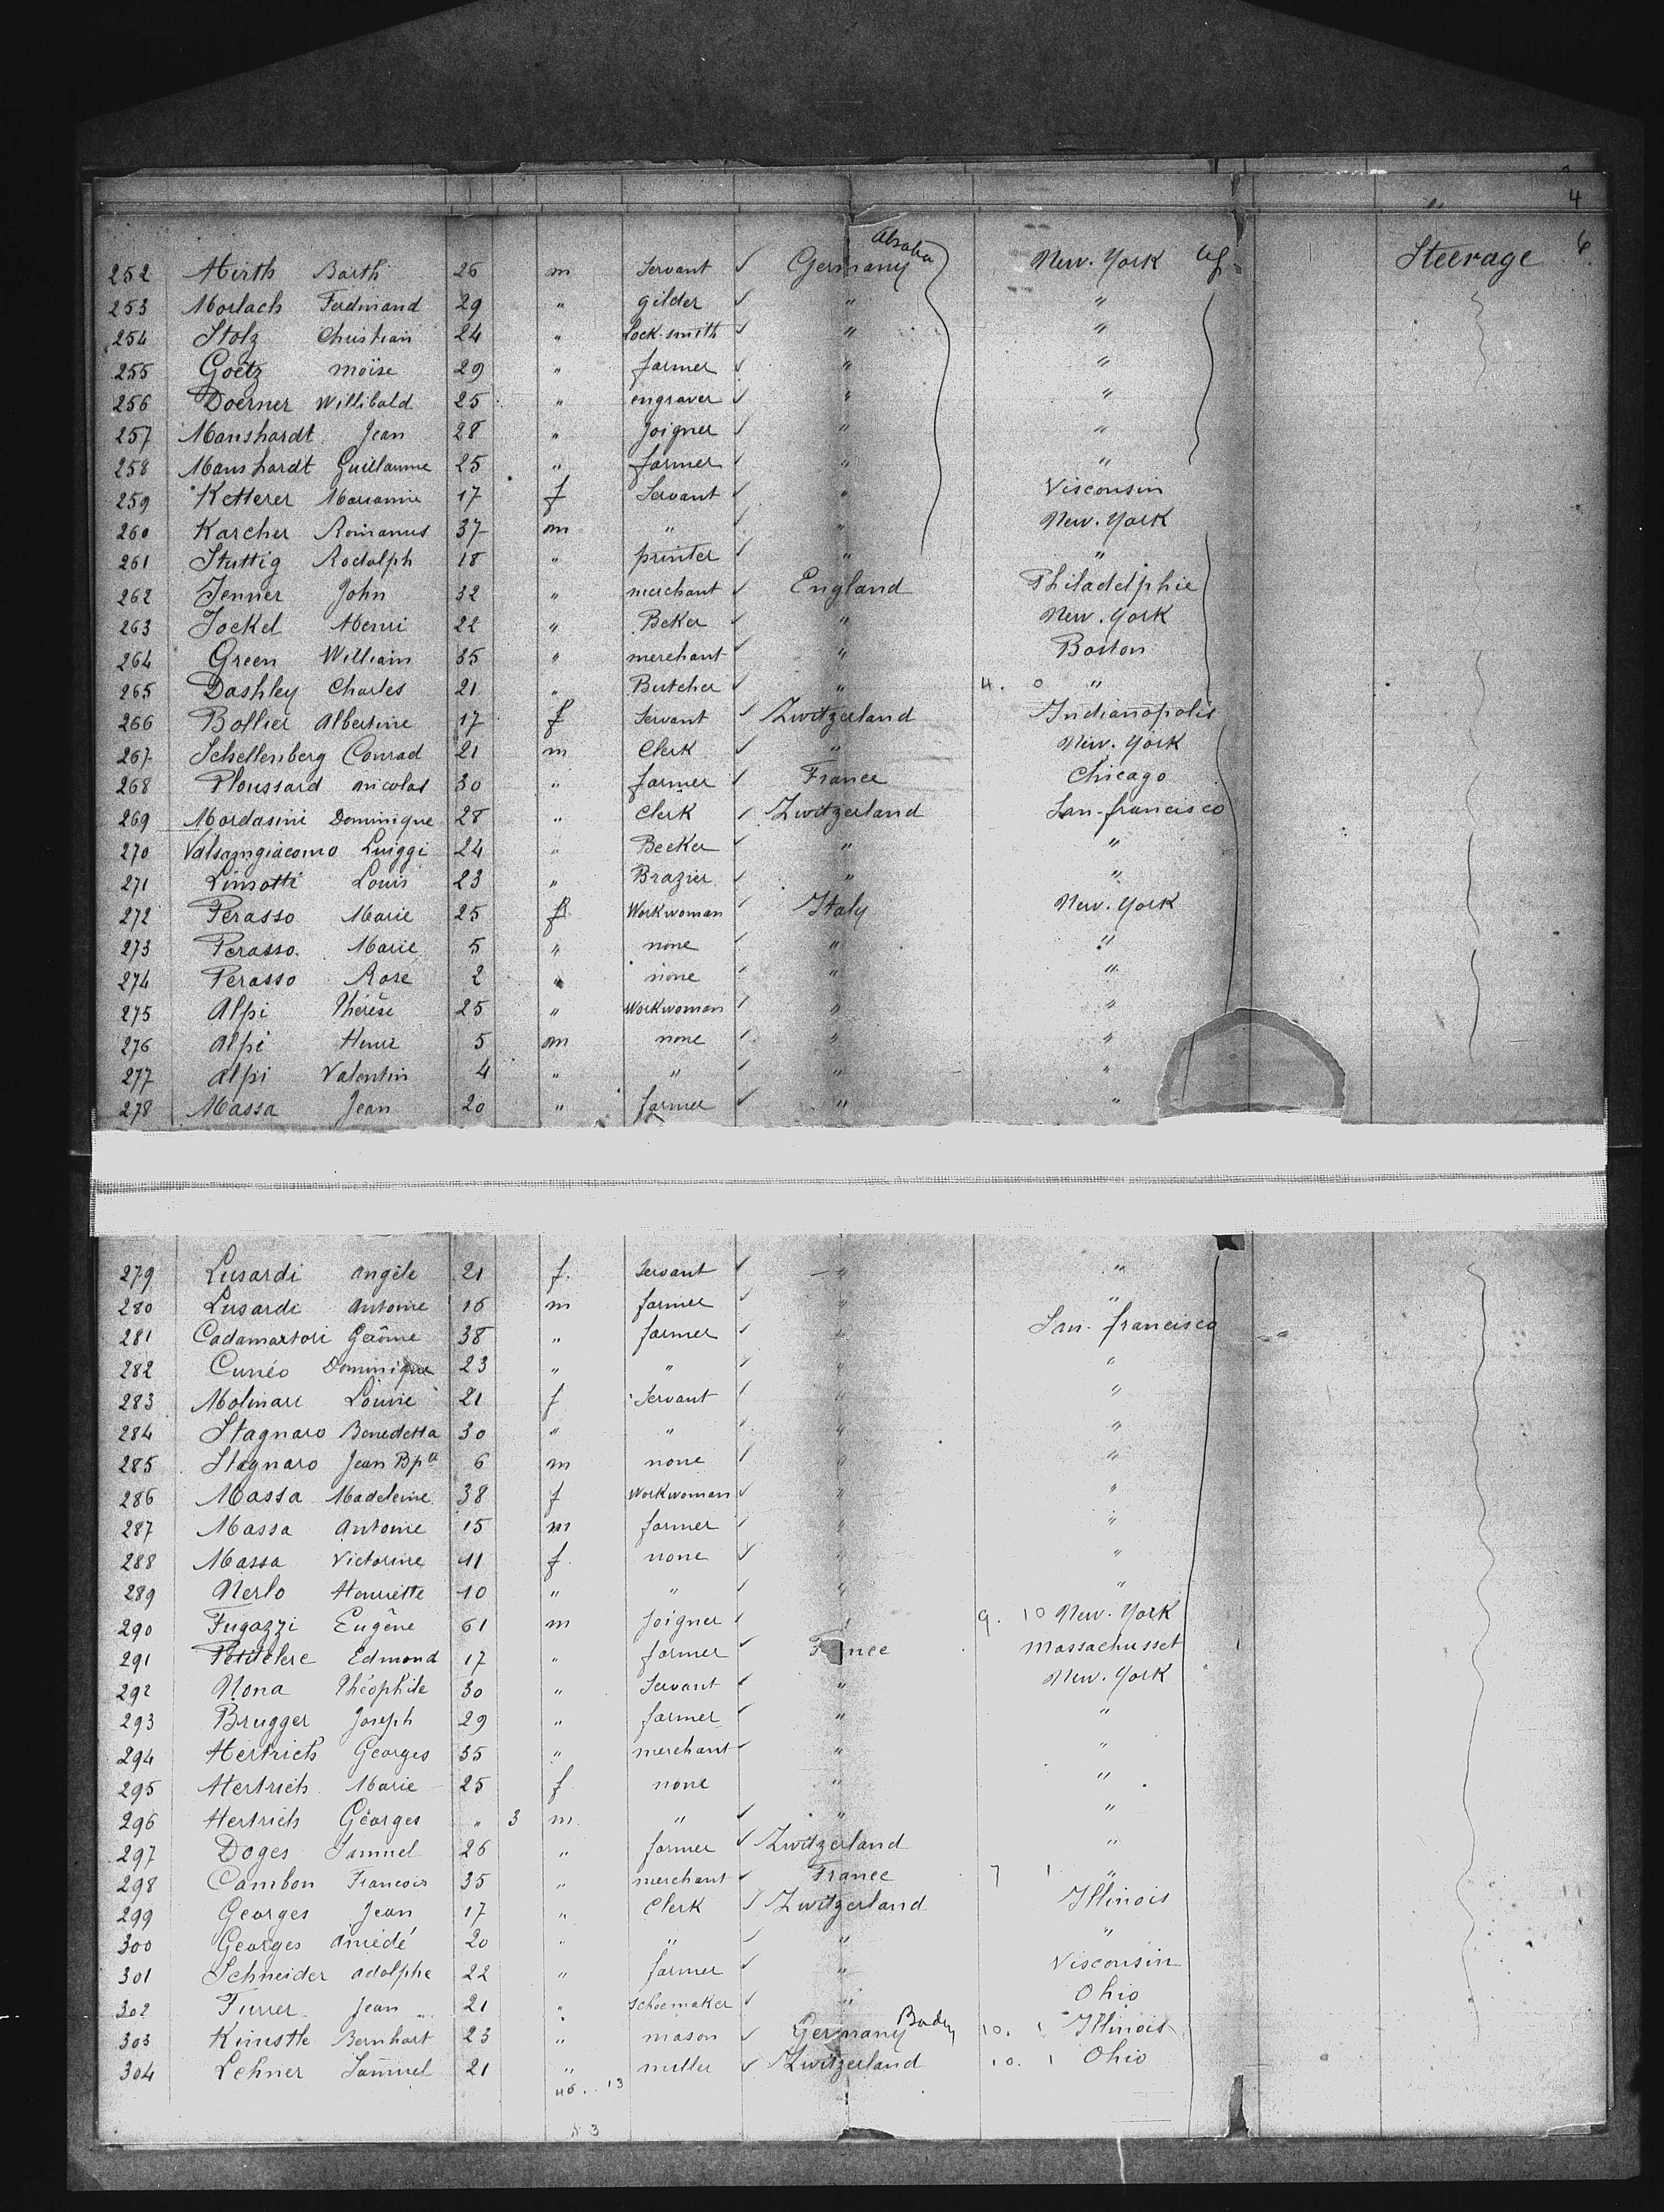 4
6.
252 Hirth Barth 26 m Servant ✓ Germany New. York Steerage
253 Morlach Ferdinand 29 " gilder ✓ " "
254 Stolz Christian 24 " Lock-smith ✓ " "
255 Goetz moïse 29 " farmer ✓ " "
256 Doerner Willibald 25 " engraver ✓ " "
257 Manshardt Jean 28 " Joigner ✓ " "
258 Manshardt Guillaume 25 " farmer ✓ " "
259 Ketterer Marianne 17 f Servant ✓ " Visconsin
260 Karcher Romanus 37 m " ✓ " New. York
261 Stuttig Rodolph 18 " printer ✓ " "
262 Jenner John 32 " merchant ✓ England Philadelphie
263 Jockel Henri 22 " Beker ✓ " New. York
264 Green William 35 " merchant ✓ " Boston
265 Dashley Charles 21 " Butcher ✓ " 4. 0 "
266 Bollier Albertine 17 f Servant ✓ Zwitzerland Indianopolis
267 Schellenberg Conrad 21 m Clerk ✓ " New. York
268 Ploussard nicolas 30 " farmer ✓ France Chicago
269 Mordasini Dominique 28 " Clerk ✓ Zwitzerland San-francisco
270 Valsangiacomo Luiggi 24 " Becker ✓ " "
271 Louis 23 " Brazier ✓ " "
272 Perasso Marie 25 f Workwoman ✓ Italy New. York
273 Perasso Marie 5 " none ✓ " "
274 Perasso Rose 2 " none ✓ " "
275 Alpi Thérèse 25 " Workwoman ✓ " "
276 Alpi 5 m none ✓ " "
277 Alpi Valentin 4 " " ✓ " "
278 Massa Jean 20 " farmer ✓ " "
279 Lusardi Angèle 21 f. Servant ✓ " "
280 Lusardi Antoine 16 m farmer ✓ " "
281 Cadamartori Gerôme 38 " farmer ✓ " San-francisco
282 Cunéo Dominique 23 " " ✓ " "
283 Molinari Louise 21 f Servant ✓ " "
284 Stagnaro Benedetta 30 " " ✓ " "
285 Stagnaro Jean Bpta 6 m none ✓ " "
286 Massa Madeleine 38 f Workwoman ✓ " "
287 Massa Antoine 15 m farmer ✓ " "
288 Massa Victorine 11 f none ✓ " "
289 Nerlo Henriette 10 " " ✓ " "
290 Fugazzi Eugêne 61 m Joigner ✓ " 9. 10 New. York
291 Petitclerc Edmond 17 " farmer ✓ France Massachusset
292 Nona Théophile 30 " Servant ✓ " New. York
293 Brugger Joseph 29 " farmer ✓ " "
294 Hertrich Georges 35 " merchant ✓ " "
295 Hertrich Marie 25 f none " "
296 Hertrich Georges " 3 m " ✓ " "
297 Doges Samuel 26 " farmer ✓ Zwitzerland "
298 Cambon Francois 35 " merchant ✓ France 7 1 "
299 Georges Jean 17 " Clerk ✓ Zwitzerland Illinois
300 Georges Amédé 20 " " ✓ " "
301 Schneider Adolphe 22 " farmer ✓ " Visconsin
302 Furrer Jean 21 " Schoemaker ✓ " Ohio
303 Kunstle Bernhart 23 " mason ✓ Germany Baden 10. 1 Illinois
304 Lehner Samuel 21 " miller ✓ Zwitzerland 10. 1 Ohio
13